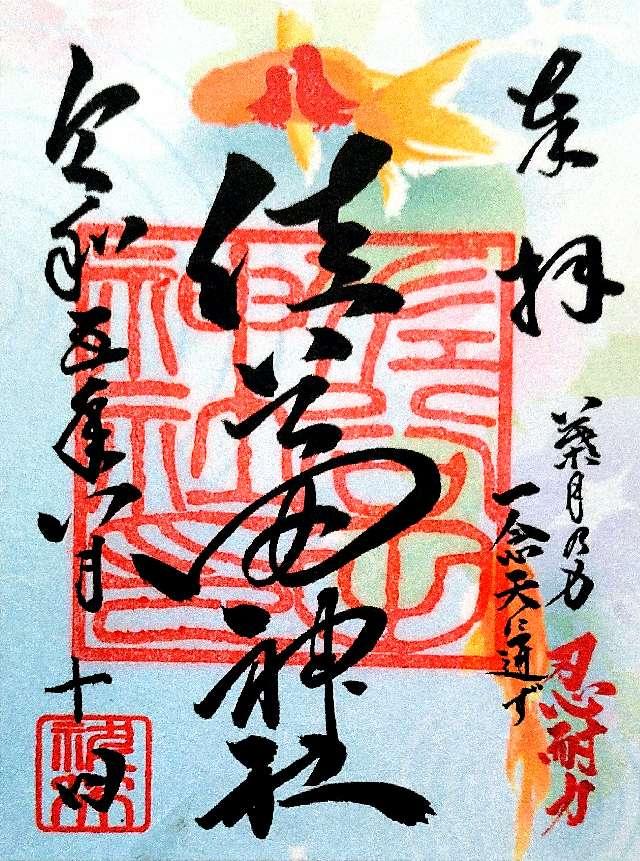 奉拝
葉月乃力
一念天に通ず
忍耐力
神社
令和五年八月十日